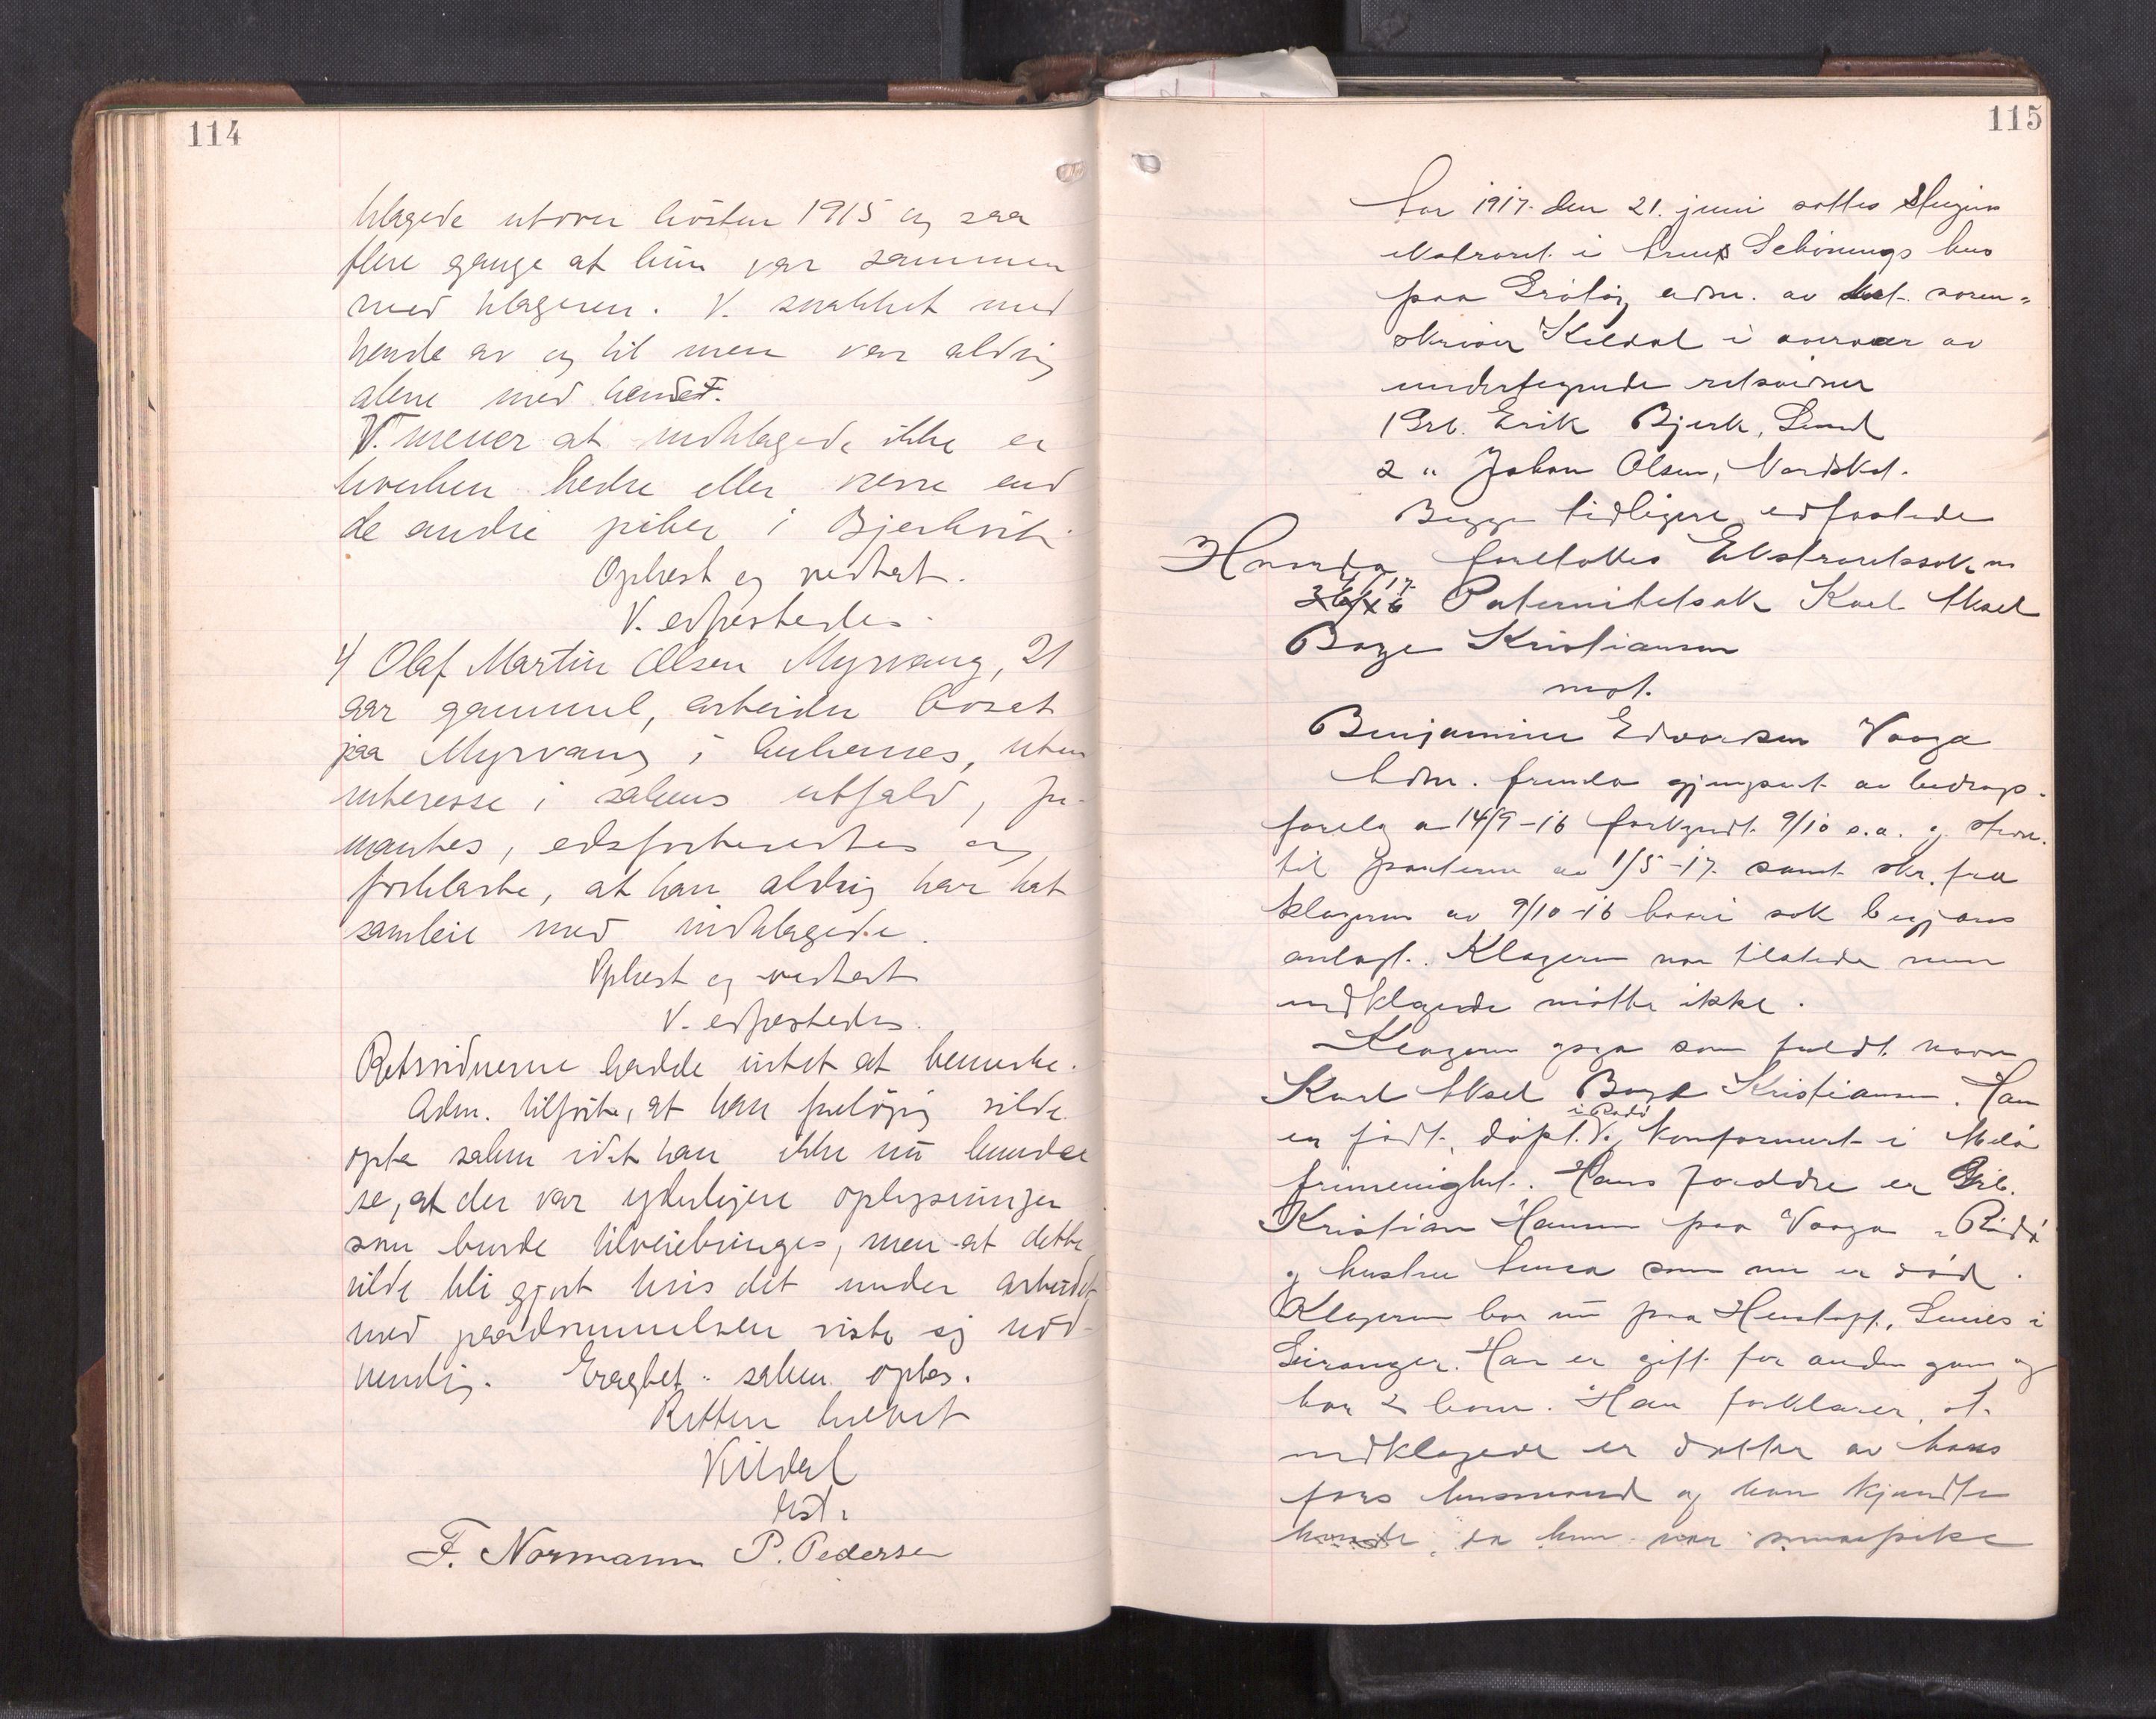 114
klagede utover hösten 1915 og saa
flere gange at hun var sammen
med klageren. V. snakket med
hende av og til men var aldrig
alene med hende.
V. mener at indklagede ikke er
hverken bedre eller verre end
de andre piker i Bjerkvik
Oplæst og vedtat.
V. edfæstedes.
4) Olaf Martin Olsen Myrvang, 21
aar gammel, arbeider bosat
paa Myrvang i Ankenes, uten
interesse i sakens utfald, for-
mantes, edsforberedtes og
forklarte, at han aldrig har hat
samleie med indklagede.
Oplæst og vedtat
V. edfæstedes.
Retsvidnerne hadde intet at bemerke.
Adm. tilförte, at han foreløpig vilde
opta saken idet han ikke nu kunde
se, at der var yderligere oplysninger
som burde tilveiebringes, men at dette
vilde bli gjort hvis det under arbeidet
med paadömmelsen viste sig nöd-
vendig. Eragtet: saken optas.
Retten hævet
Kildal
kst.
F. Normann P. Pedersen
115
Aar 1917 den 21. juni sattes Steigen
ekstraret i Schönings hus
paa Grötöy adm. av kst. soren-
skriver Kildal i overvær av
undertegnede retsvidner
1 Grb. Erik Bjerk, Lund
2 " Johan Olsen, Nordskot.
Begge tidligere edfæstede
Hvorda foretokes Ekstraretssak nr
Paternitetsak Karl Aksel
Boye Kristiansen
mot.
Benjamine Edvardsen Vaaga
Adm. fremla gjenpart av bidrags-
forelæg av 14/9-16 forkyndt 9/10 s.a. og skr.
til parterne av 1/5-17 samt skr. fra
klageren av 9/10-16 hvori sak begjæres
anlagt. Klageren var tilstede men
indklagede mötte ikke.
Klageren opga som fuldt navn
Karl Aksel Boye Kristiansen. Han
er födt, döpt i Rödö V. konformert i Melö
frimenighet. Hans foreldre er Grb.
Kristian Hansen paa Vaaga i Rödö
og hustru Anna som nu er död.
Klageren bor nu paa Lines i
Leiranger. Han er gift for anden gang og
har 2 barn. Han forklarer, at
indklagede er datter av hans
fars husmand og han kjendte
hende, da hun var smaapike